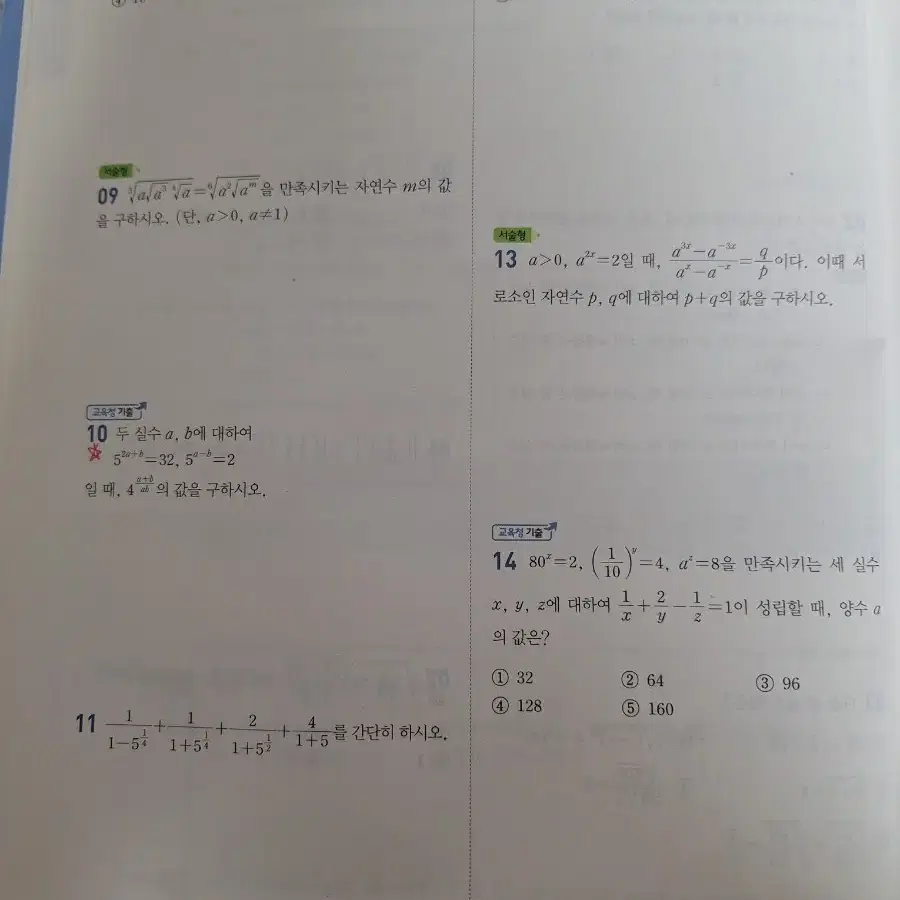 서술형
09 ∛(a√(a³ ∜a)) = ⁶√(a²√(aᵐ))을 만족시키는 자연수 m의 값
을 구하시오. (단, a>0, a≠1)
교육청 기출
10 두 실수 a, b에 대하여
5^(2a+b)=32, 5^(a-b)=2
일 때, 4^((a+b)/ab)의 값을 구하시오.
11 1/(1-5^(1/4)) + 1/(1+5^(1/4)) + 2/(1+5^(1/2)) + 4/(1+5)를 간단히 하시오.
서술형
13 a>0, a^(2x)=2일 때, (a^(3x)-a^(-3x))/(a^x-a^(-x)) = q/p이다. 이때 서
로소인 자연수 p, q에 대하여 p+q의 값을 구하시오.
교육청 기출
14 80^x=2, (1/10)^y=4, a^z=8을 만족시키는 세 실수
x, y, z에 대하여 1/x + 2/y - 1/z = 1이 성립할 때, 양수 a
의 값은?
① 32 ② 64 ③ 96
④ 128 ⑤ 160